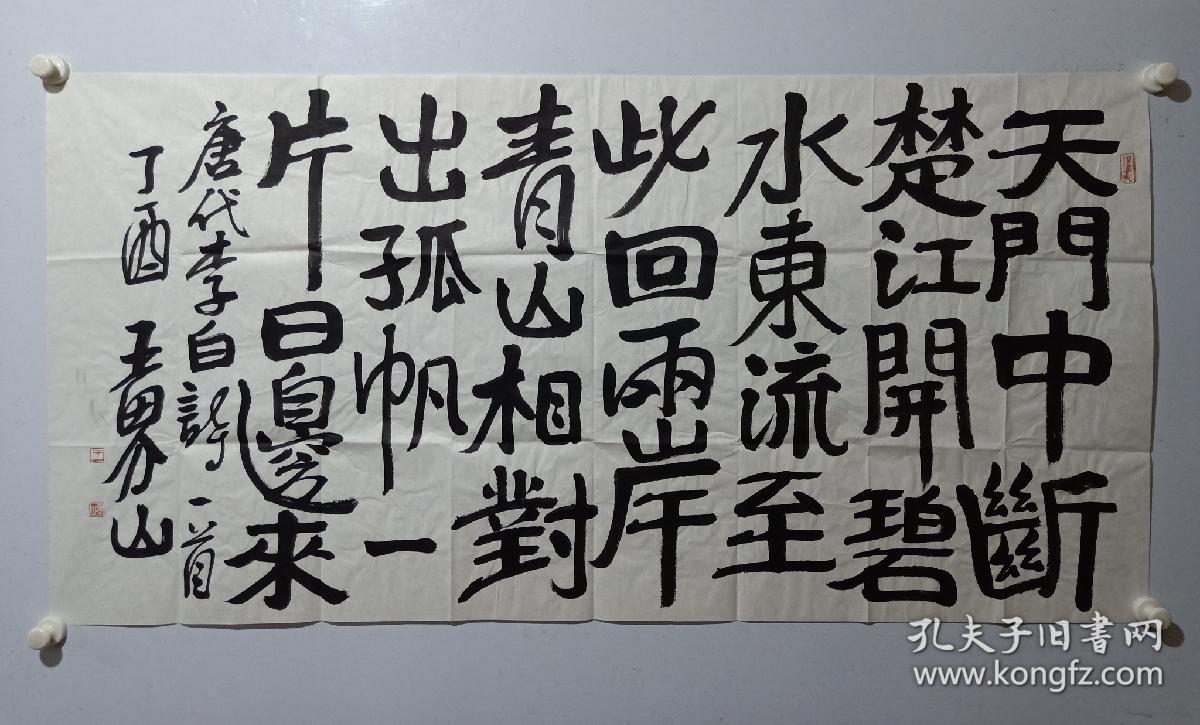 天門中斷
楚江開碧
水東流至
此回兩岸
青山相對
出孤帆一
片日邊來
唐代李白詩一首
丁酉 王勇山
孔夫子旧書网
www.kongfz.com